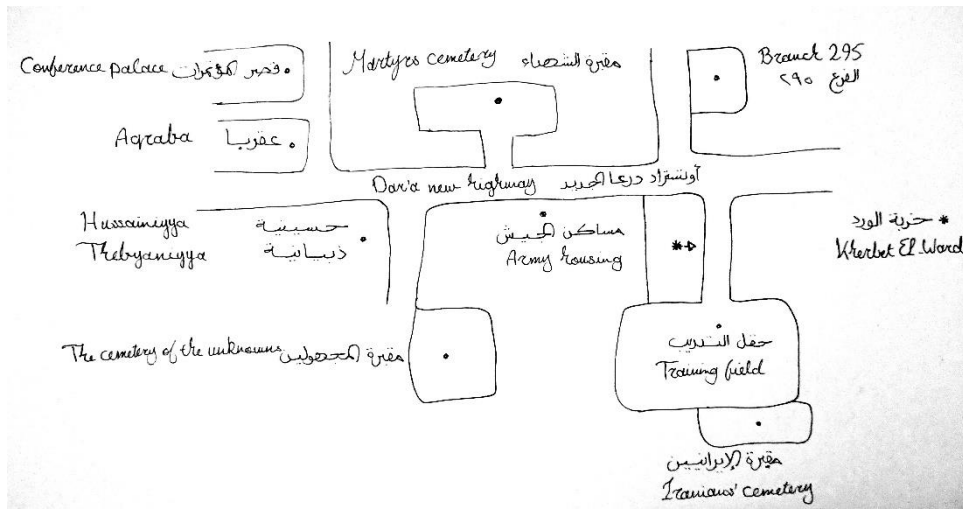 Conference palace قصر المؤتمرات
Martyrs cemetery مقبرة الشهداء
Branch 295
الفرع ٢٩٥
Aqraba عقربا
Dar'a new highway أوتستراد درعا الجديد
Hussainiyya حسينية
Thebyaniyya ذبيانية
مساكن الجيش
Army housing
خربة الورد
Kherbet El-Ward
The cemetery of the unknowns مقبرة المجهولين
حقل التدريب
Training field
مقبرة الإيرانيين
Iranians' cemetery